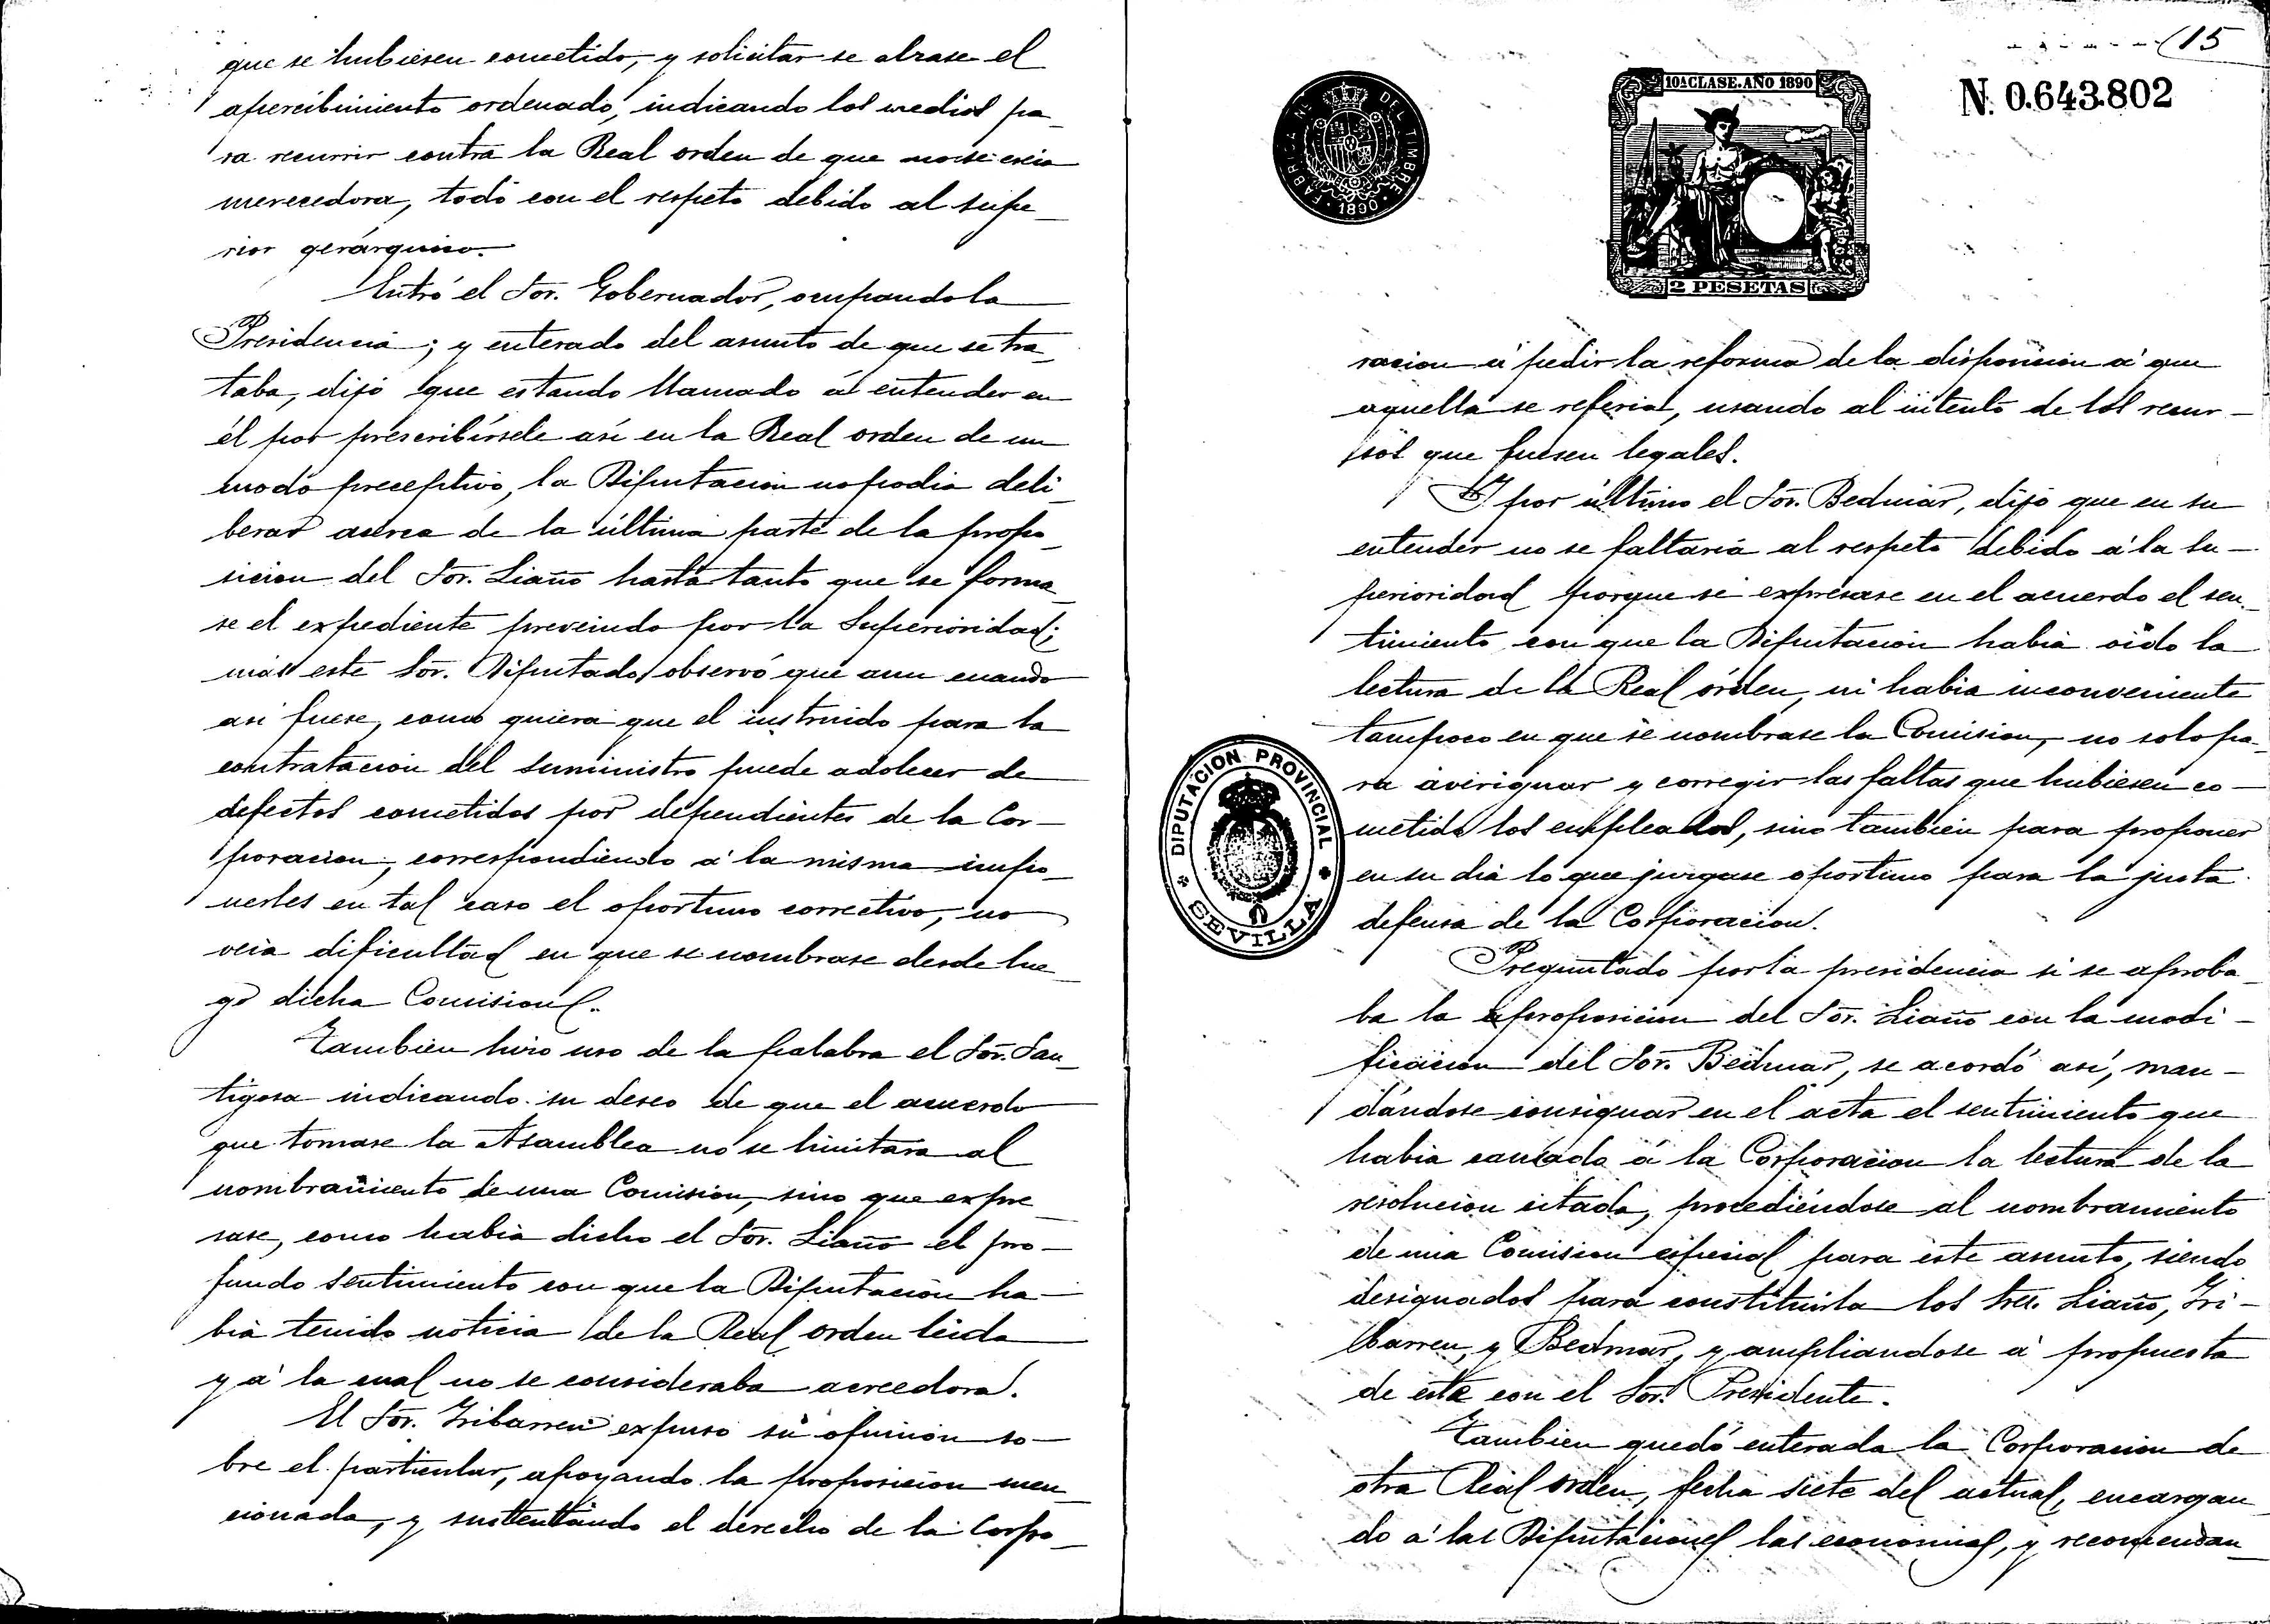 que se hubiesen cometido, y solicitar se alzase el
apercibimiento ordenado, indicando los medios pa_
ra recurrir contra la Real orden de que no se creia
merecedora, todo con el respeto debido al supe_
rior gerárquico.
Entró el Sor. Gobernador, ocupando la
Presidencia; y enterado del asunto de que se tra_
taba, dijo que estando llamado á entender en
él por prescribírsele así en la Real orden de un
modo preceptivo, la Diputacion no podia deli_
berar acerca de la última parte de la propo_
sicion del Sor. Liaño hasta tanto que se forma_
se el expediente prevenido por la Superioridad;
mas este Sor. Diputado observó que aun cuando
asi fuese, como quiera que el instruido para la
contratacion del suministro puede adolecer de
defectos cometidos por dependientes de la Cor_
poracion, correspondiendo á la misma impo_
nerles en tal caso el oportuno correctivo, no
veia dificultad en que se nombrase desde lue_
go dicha Comision.
Tambien hizo uso de la palabra el Sor. San_
tigosa indicando su deseo de que el acuerdo
que tomase la Asamblea no se limitara al
nombramiento de una Comision, sino que expre_
sase, como habia dicho el Sor. Liaño el pro_
fundo sentimiento con que la Diputacion ha_
bia tenido noticia de la Real orden leida
y á la cual no se consideraba acreedora.
El Sor. Iribarren expuso su opinion so_
bre el particular, apoyando la proposicion men_
cionada, y sustentando el derecho de la Corpo_
15
FABRICA NL. DEL TIMBRE
1890
10A CLASE. AÑO 1890
2 PESETAS
N. 0.643.802
racion á pedir la reforma de la disposicion á que
aquella se referia, usando al intento de los recur_
sos que fuesen legales.
Y por último el Sor. Bedmar, dijo que en su
entender no se faltaria al respeto debido á la Su_
perioridad porque se expresase en el acuerdo el sen_
timiento con que la Diputacion habia oido la
lectura de la Real órden, ni habia inconveniente
tampoco en que se nombrase la Comision, no solo pa_
ra averiguar y corregir las faltas que hubiesen co_
metido los empleados, sino tambien para proponer
en su dia lo que juzgase oportuno para la justa
defensa de la Corporacion.
DIPUTACION PROVINCIAL
SEVILLA
Preguntado por la presidencia si se aproba_
ba la proposicion del Sor. Liaño con la modi_
ficacion del Sor. Bedmar, se acordó así, man_
dándose consignar en el acta el sentimiento que
habia causado á la Corporacion la lectura de la
resolucion citada, procediéndose al nombramiento
de una Comision especial para este asunto, siendo
designados para constituirla los Sres. Liaño, Iri_
barren, y Bedmar, y ampliandose á propuesta
de este con el Sor. Presidente.
Tambien quedó enterada la Corporacion de
otra Real orden, fecha siete del actual, encargan_
do á las Diputaciones las economias, y recomendan_